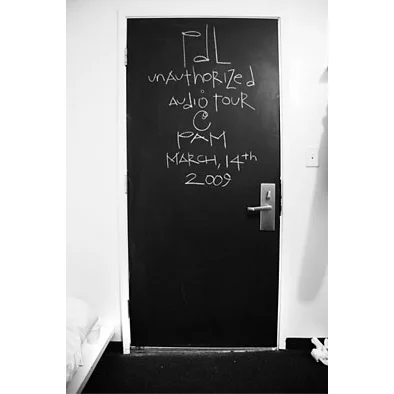 PdL
unAuthoRized
AUDiO TOUR
@
PAM
MARCH, 14th
2009